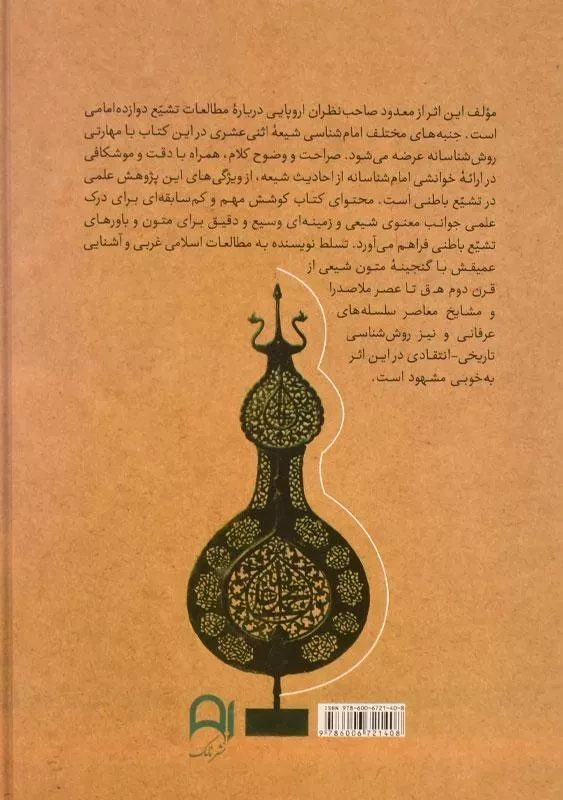 مؤلف این اثر از معدود صاحب‌نظران اروپایی دربارهٔ مطالعات تشیّع دوازده‌امامی
است. جنبه‌های مختلف امام‌شناسی شیعهٔ اثنی‌عشری در این کتاب با مهارتی
روش‌شناسانه عرضه می‌شود. صراحت و وضوح کلام، همراه با دقت و موشکافی
در ارائهٔ خوانشی امام‌شناسانه از احادیث شیعه، از ویژگی‌های این پژوهش علمی
در تشیّع باطنی است. محتوای کتاب کوشش مهم و کم‌سابقه‌ای برای درک
علمی جوانب معنوی شیعی و زمینه‌ای وسیع و دقیق برای متون و باورهای
تشیّع باطنی فراهم می‌آورد. تسلط نویسنده به مطالعات اسلامی غربی و آشنایی
عمیقش با گنجینهٔ متون شیعی از
قرن دوم هـ.ق تا عصر ملاصدرا
و مشایخ معاصر سلسله‌های
عرفانی و نیز روش‌شناسی
تاریخی-انتقادی در این اثر
به‌خوبی مشهود است.
ISBN 978-600-6721-40-8
9 786006 721408
نشر نامک